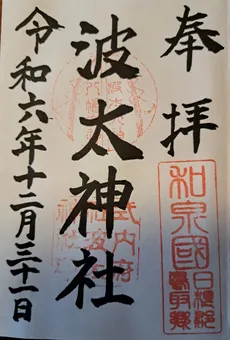 奉拝
和泉國
日根郡
鳥取郷
波太神社
令和六年十二月三十一日